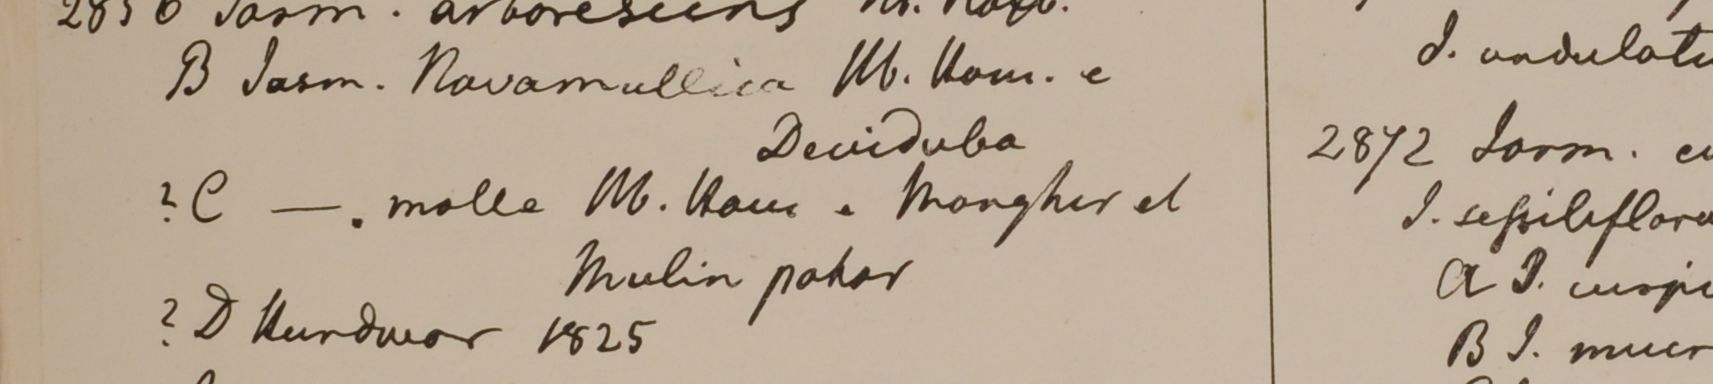 2856 Jasm. arborescens Hb. Roxb.
B Jasm. Navamullica Hb. Ham. e
Deviduba
? C —. molle Hb. Ham e Monghir et
Mulin pahar
? D Hurdwar 1825
J. undulatu
2872 Jasm. cu
J. sessiliflora
a J. cuspi
B J. mucr